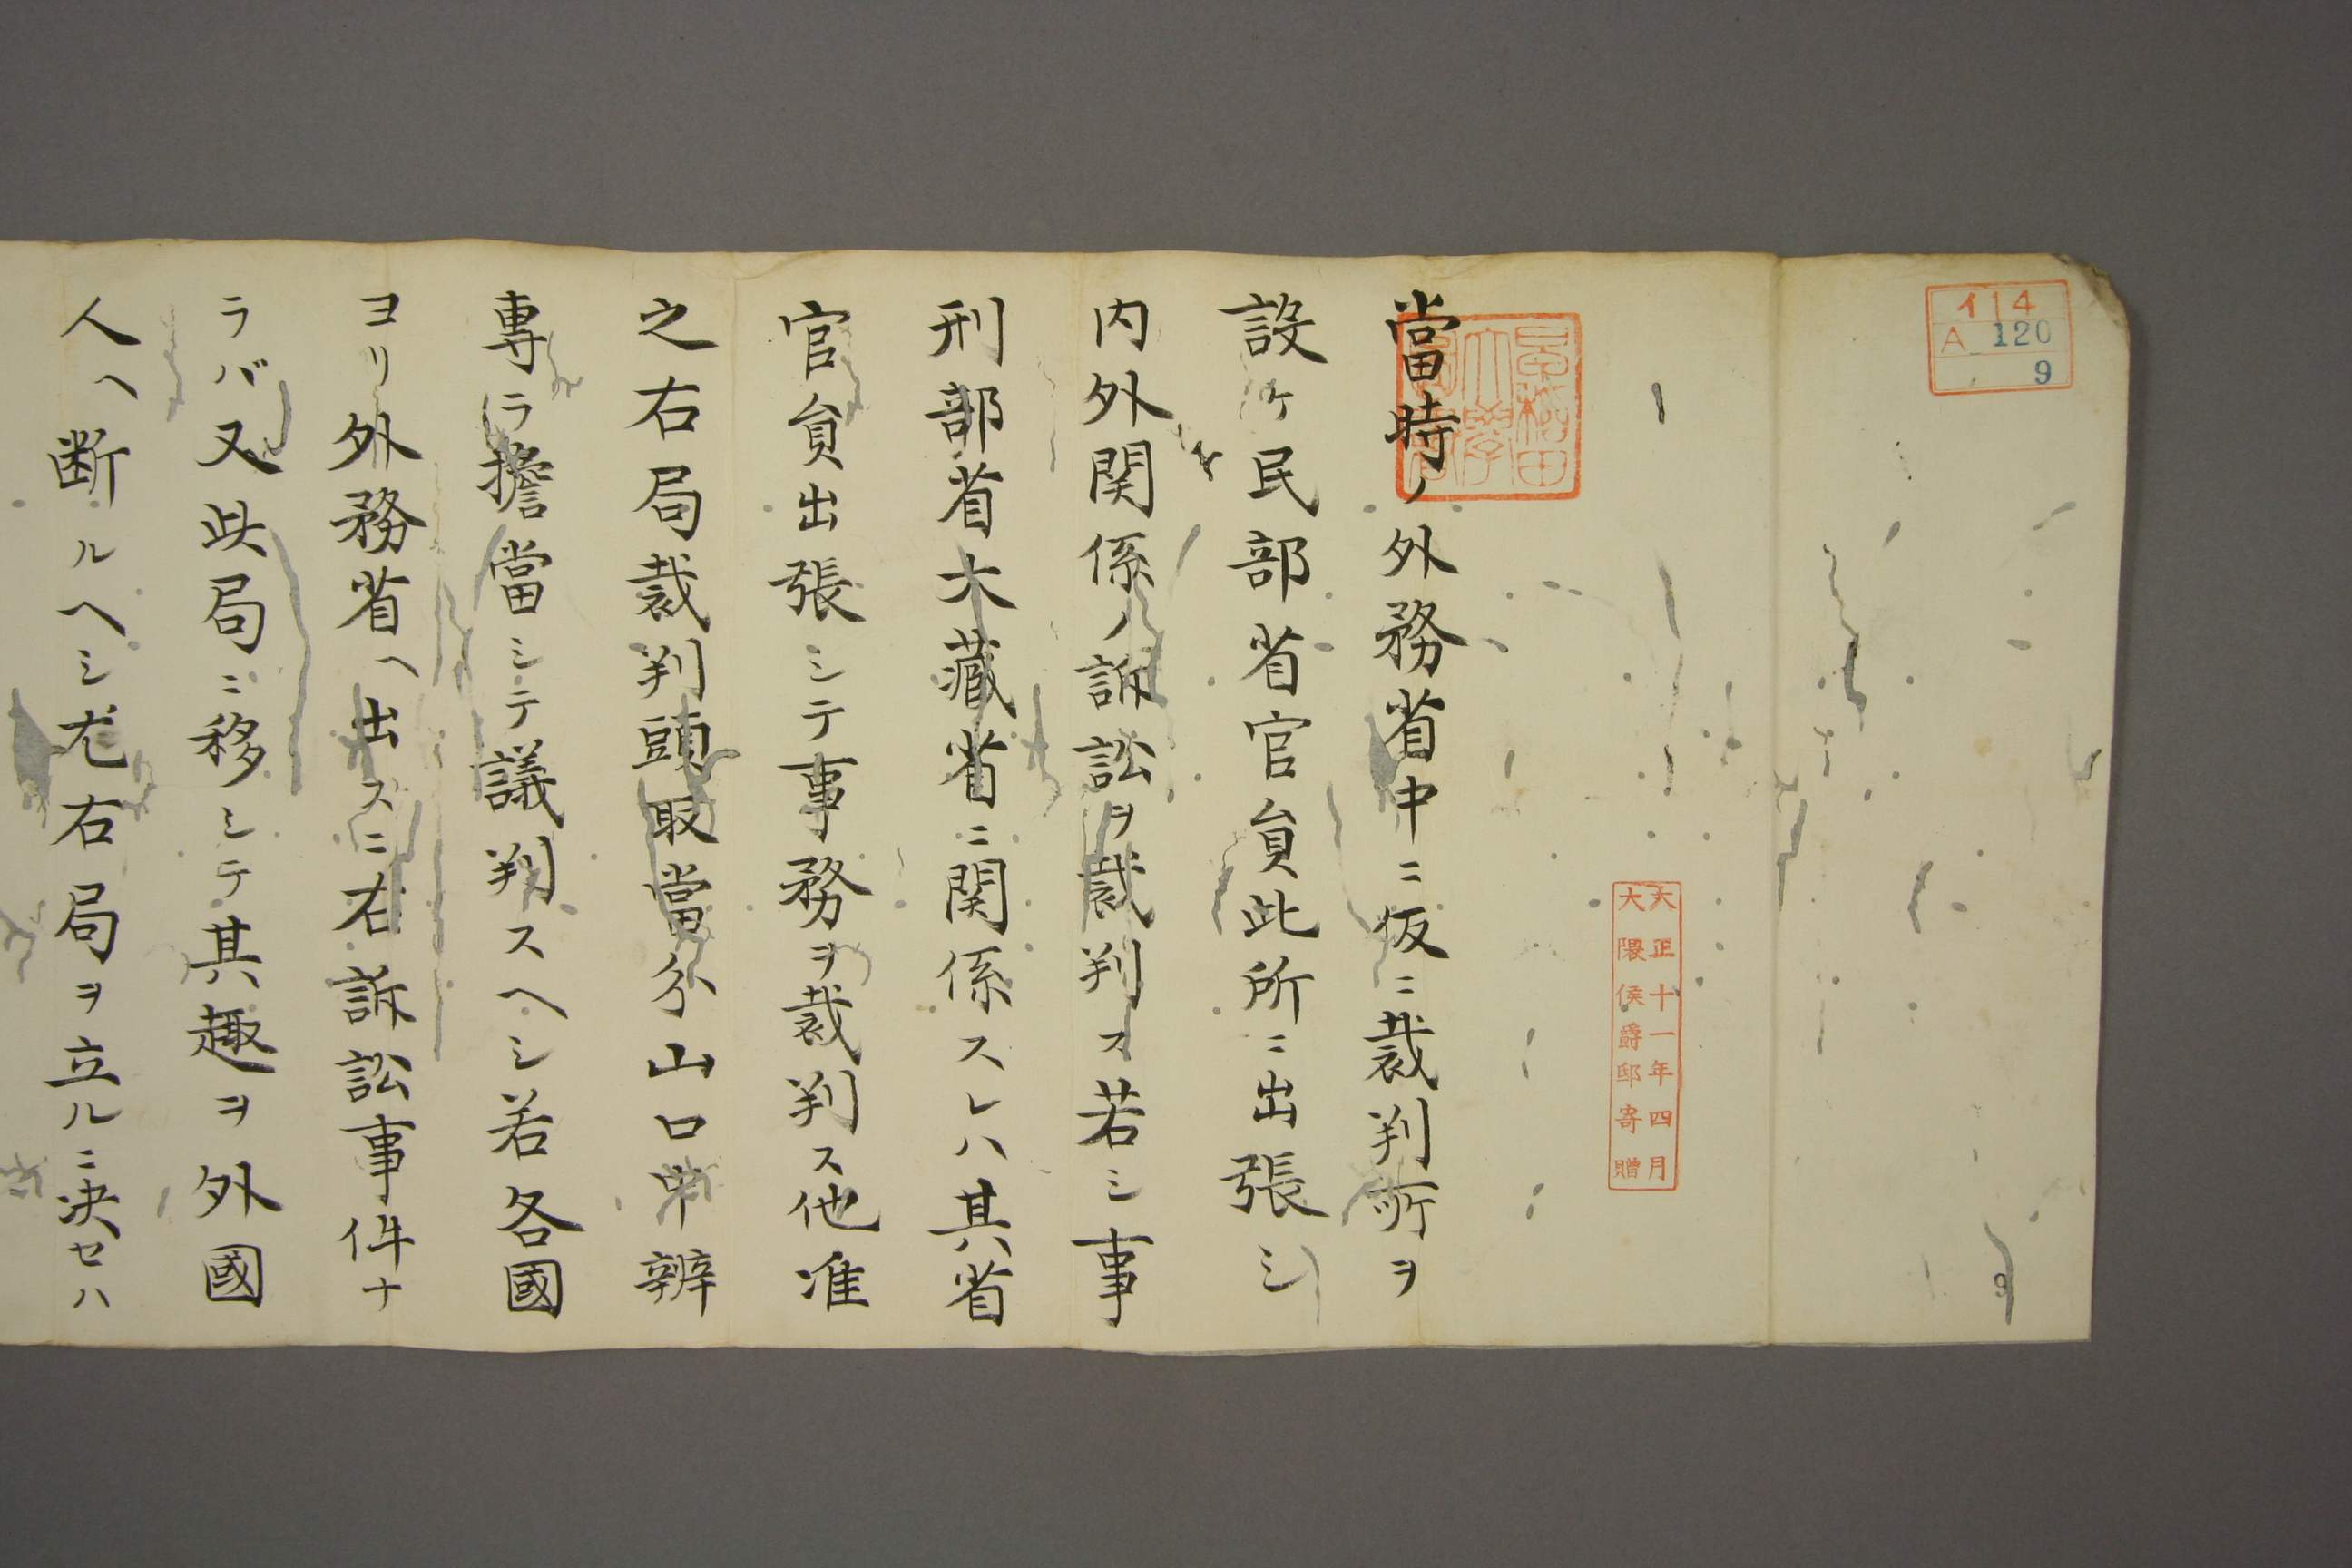 イ14
A 120
9
大正十一年四月
大隈侯爵邸寄贈
早稲田
大學
圖書
一
當時ノ外務省中ニ仮ニ裁判所ヲ
設ケ民部省官貟此所ニ出張シ
内外関係ノ訴訟ヲ裁判ス若シ事
刑部省大藏省ニ関係スレハ其省
官貟出張シテ事務ヲ裁判ス他准
之右局裁判頭取當分山口中辨
專ラ擔當シテ議判スヘシ若各國
ヨリ外務省ヘ出スニ右訴訟事件ナ
ラバ又此局ニ移シテ其趣ヲ外國
人ヘ断ルヘシ尤右局ヲ立ルニ决セハ